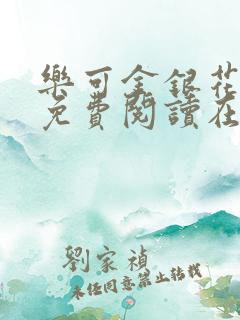 樂可金銀花
免費閱讀在
劉家禎
未經同意禁止轉載